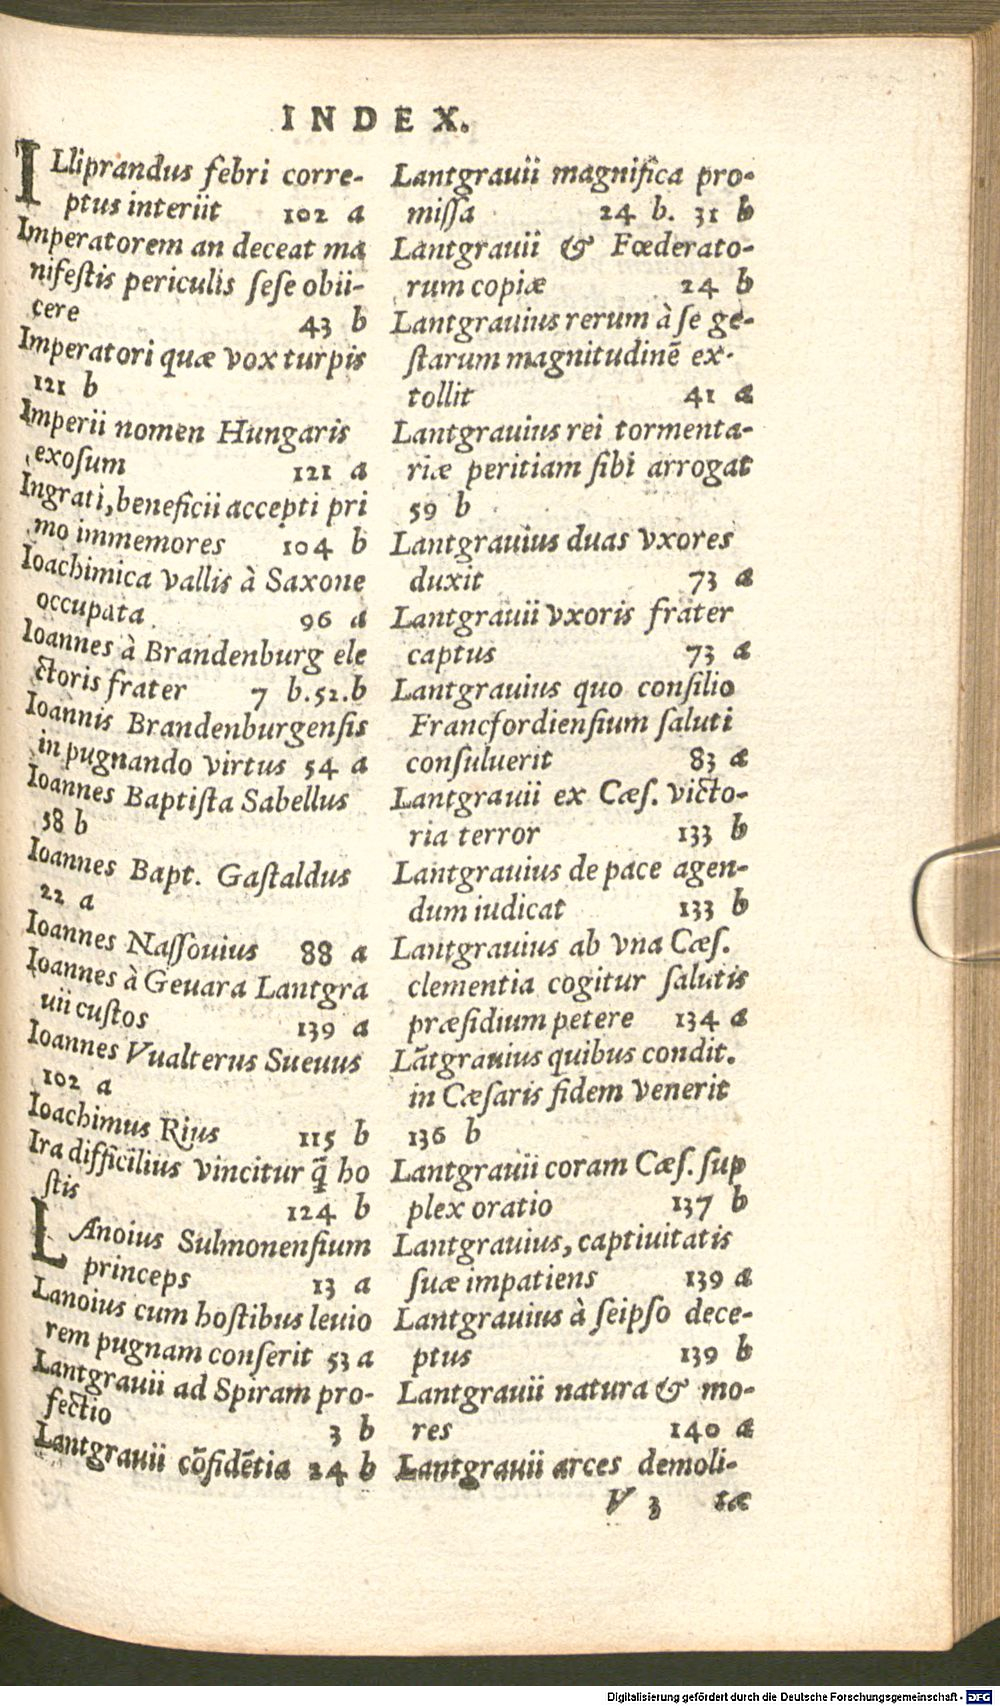 INDEX.
ILliprandus febri corre-
ptus interiit 102 a
Imperatorem an deceat ma
nifestis periculis sese obii-
cere 43 b
Imperatori quæ vox turpis
121 b
Imperii nomen Hungaris
exosum 121 a
Ingrati, beneficii accepti pri
mo immemores 104 b
Ioachimica vallis à Saxone
occupata 96 a
Ioannes à Brandenburg ele
ctoris frater 7 b. 52. b
Ioannis Brandenburgensis
in pugnando virtus 54 a
Ioannes Baptista Sabellus
58 b
Ioannes Bapt. Gastaldus
22 a
Ioannes Nassouius 88 a
Ioannes à Geuara Lantgra
uii custos 139 a
Ioannes Vualterus Sueuus
102 a
Ioachimus Rius 115 b
Ira difficilius vincitur q̃ ho
stis 124 b
LAnoius Sulmonensium
princeps 13 a
Lanoius cum hostibus leuio
rem pugnam conserit 53 a
Lantgrauii ad Spiram pro-
fectio 3 b
Lantgrauii cõfidẽtia 24 b
Lantgrauii magnifica pro-
missa 24 b. 31 b
Lantgrauii & Fœderato-
rum copiæ 24 b
Lantgrauius rerum à se ge-
starum magnitudinẽ ex-
tollit 41 a
Lantgrauius rei tormenta-
riæ peritiam sibi arrogat
59 b
Lantgrauius duas vxores
duxit 73 a
Lantgrauii vxoris frater
captus 73 a
Lantgrauius quo consilio
Francfordiensium saluti
consuluerit 83 a
Lantgrauii ex Cæs. victo-
ria terror 133 b
Lantgrauius de pace agen-
dum iudicat 133 b
Lantgrauius ab vna Cæs.
clementia cogitur salutis
præsidium petere 134 a
Lãtgrauius quibus condit.
in Cæsaris fidem venerit
136 b
Lantgrauii coram Cæs. sup
plex oratio 137 b
Lantgrauius, captiuitatis
suæ impatiens 139 a
Lantgrauius à seipso dece-
ptus 139 b
Lantgrauii natura & mo-
res 140 a
Lantgrauii arces demoli-
V 3 tæ
Digitalisierung gefördert durch die Deutsche Forschungsgemeinschaft - DFG